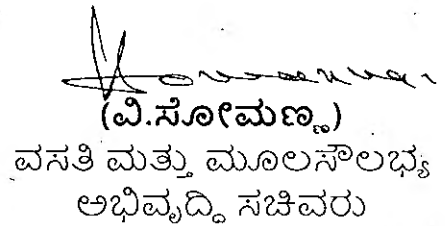 (ವಿ.ಸೋಮಣ್ಣ)
ವಸತಿ ಮತ್ತು ಮೂಲಸೌಲಭ್ಯ
ಅಭಿವೃದ್ಧಿ ಸಚಿವರು